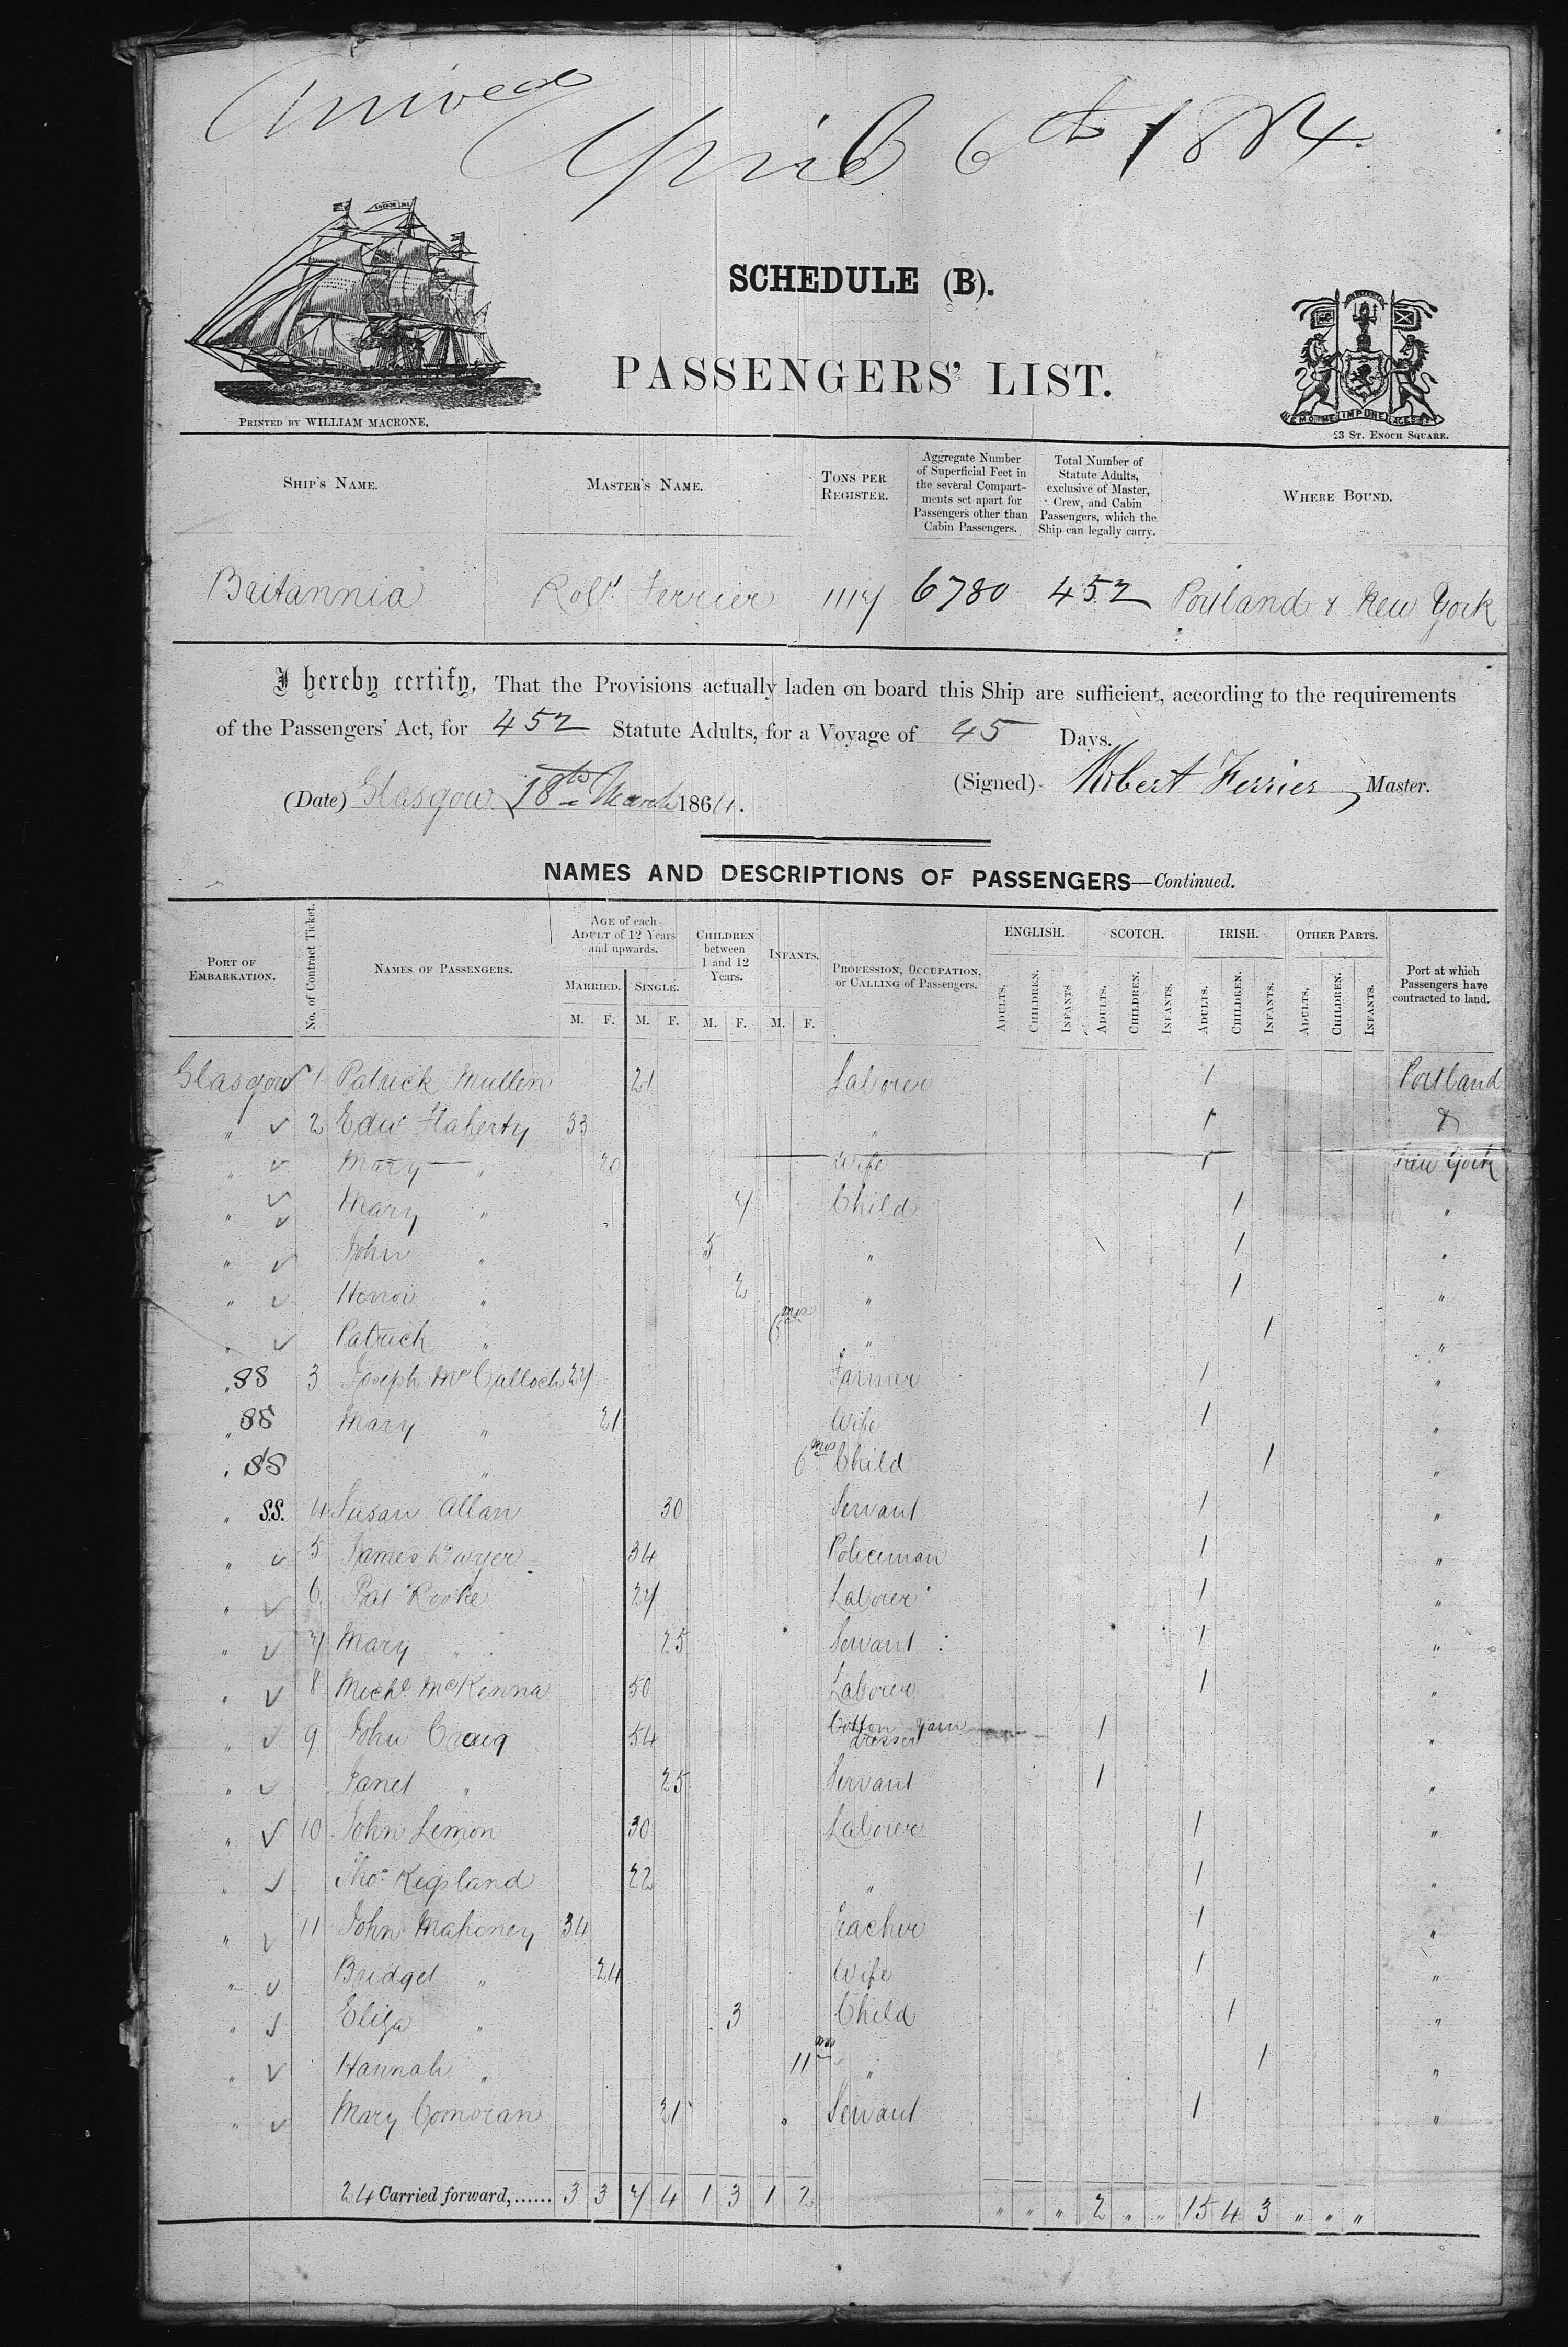 Arrived
April 6th 1864.
SCHEDULE (B).
PASSENGERS' LIST.
PRINTED BY WILLIAM MACRONE,
23 ST. ENOCH SQUARE.
SHIP'S NAME.
MASTER'S NAME.
TONS PER REGISTER.
Aggregate Number of Superficial Feet in the several Compartments set apart for Passengers other than Cabin Passengers.
Total Number of Statute Adults, exclusive of Master, Crew, and Cabin Passengers, which the Ship can legally carry.
WHERE BOUND.
Britannia Robt. Ferrier 1117 6780 452 Portland & New York
I hereby certify, That the Provisions actually laden on board this Ship are sufficient, according to the requirements
of the Passengers' Act, for 452 Statute Adults, for a Voyage of 45 Days.
(Signed) Robert Ferrier, Master.
(Date) Glasgow 18th March 1864.
NAMES AND DESCRIPTIONS OF PASSENGERS—Continued.
PORT OF EMBARKATION.
No. of Contract Ticket.
NAMES OF PASSENGERS.
AGE of each ADULT of 12 Years and upwards.
MARRIED. SINGLE.
CHILDREN between 1 and 12 Years.
INFANTS.
M. F. M. F. M. F. M. F.
PROFESSION, OCCUPATION, or CALLING of Passengers.
ENGLISH. SCOTCH. IRISH. OTHER PARTS.
ADULTS. CHILDREN. INFANTS ADULTS. CHILDREN. INFANTS. ADULTS. CHILDREN. INFANTS. ADULTS. CHILDREN. INFANTS.
Port at which Passengers have contracted to land.
Glasgow ✓ 1 Patrick Mullen 21 Laborer 1 Portland
" ✓ 2 Edwd Flaherty 33 " 1 &
" ✓ Mary " 20 Wife 1 New York
" ✓ Mary " 7 Child 1 "
" ✓ John " 5 " 1 "
" ✓ Honor " 2 " 1 "
" ✓ Patrick " 6 mos " 1 "
" SS 3 Joseph McCulloch 27 Farmer 1 "
" SS Mary " 21 Wife 1 "
" SS " 6 mos Child 1 "
" S.S. 4 Susan Allan 30 Servant 1 "
" ✓ 5 James Dwyer 34 Policeman 1 "
" ✓ 6 Pat Rooke 27 Laborer 1 "
" ✓ 7 Mary " 25 Servant 1 "
" ✓ 8 Michl McKenna 50 Laborer 1 "
" ✓ 9 John Craig 54 Cotton yarn dresser 1 "
" ✓ Janet " 25 Servant 1 "
" ✓ 10 John Lemon 30 Laborer 1 "
" ✓ Thos. 22 " 1 "
" ✓ 11 John Mahoney 34 Teacher 1 "
" ✓ Bridget " 24 Wife 1 "
" ✓ Eliza " 3 Child 1 "
" ✓ Hannah " 11 mos " 1 "
" ✓ Mary Comoran 21 Servant 1 "
24 Carried forward,...... 3 3 7 4 1 3 1 2 " " " 2 " " 15 4 3 " " "